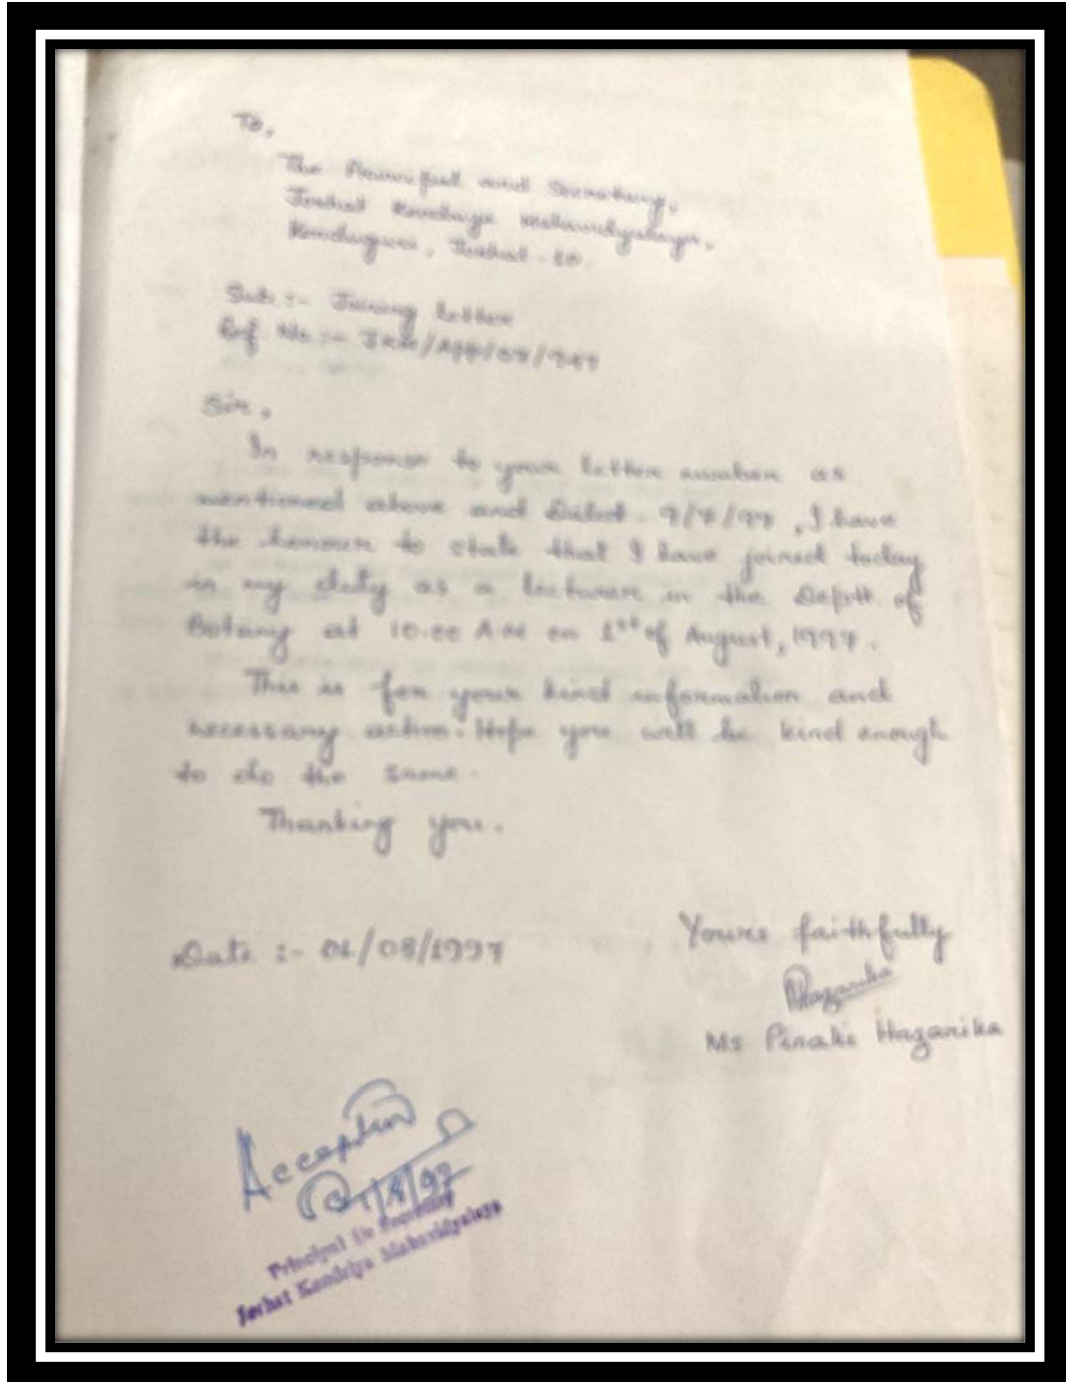 To,
The Principal and Secretary,
Jorhat Kendriya Mahavidyalaya,
Kenduguri, Jorhat-10.
Sub:- Joining letter
Ref No:- JKM/App/
Sir,
In response to your letter number as
mentioned above and Dated , I have
the honour to state that I have joined today
in my duty as a lecturer in the Deptt. of
Botany at 10.00 A.M on 1st of August, 1997.
This is for your kind information and
necessary action. Hope you will be kind enough
to do the same.
Thanking you.
Date :- 01/08/1997
Yours faithfully
Hazarika
Ms Pinaki Hazarika
Accepted
1/8/97
Principal Secretary
Jorhat Kendriya Mahavidyalaya